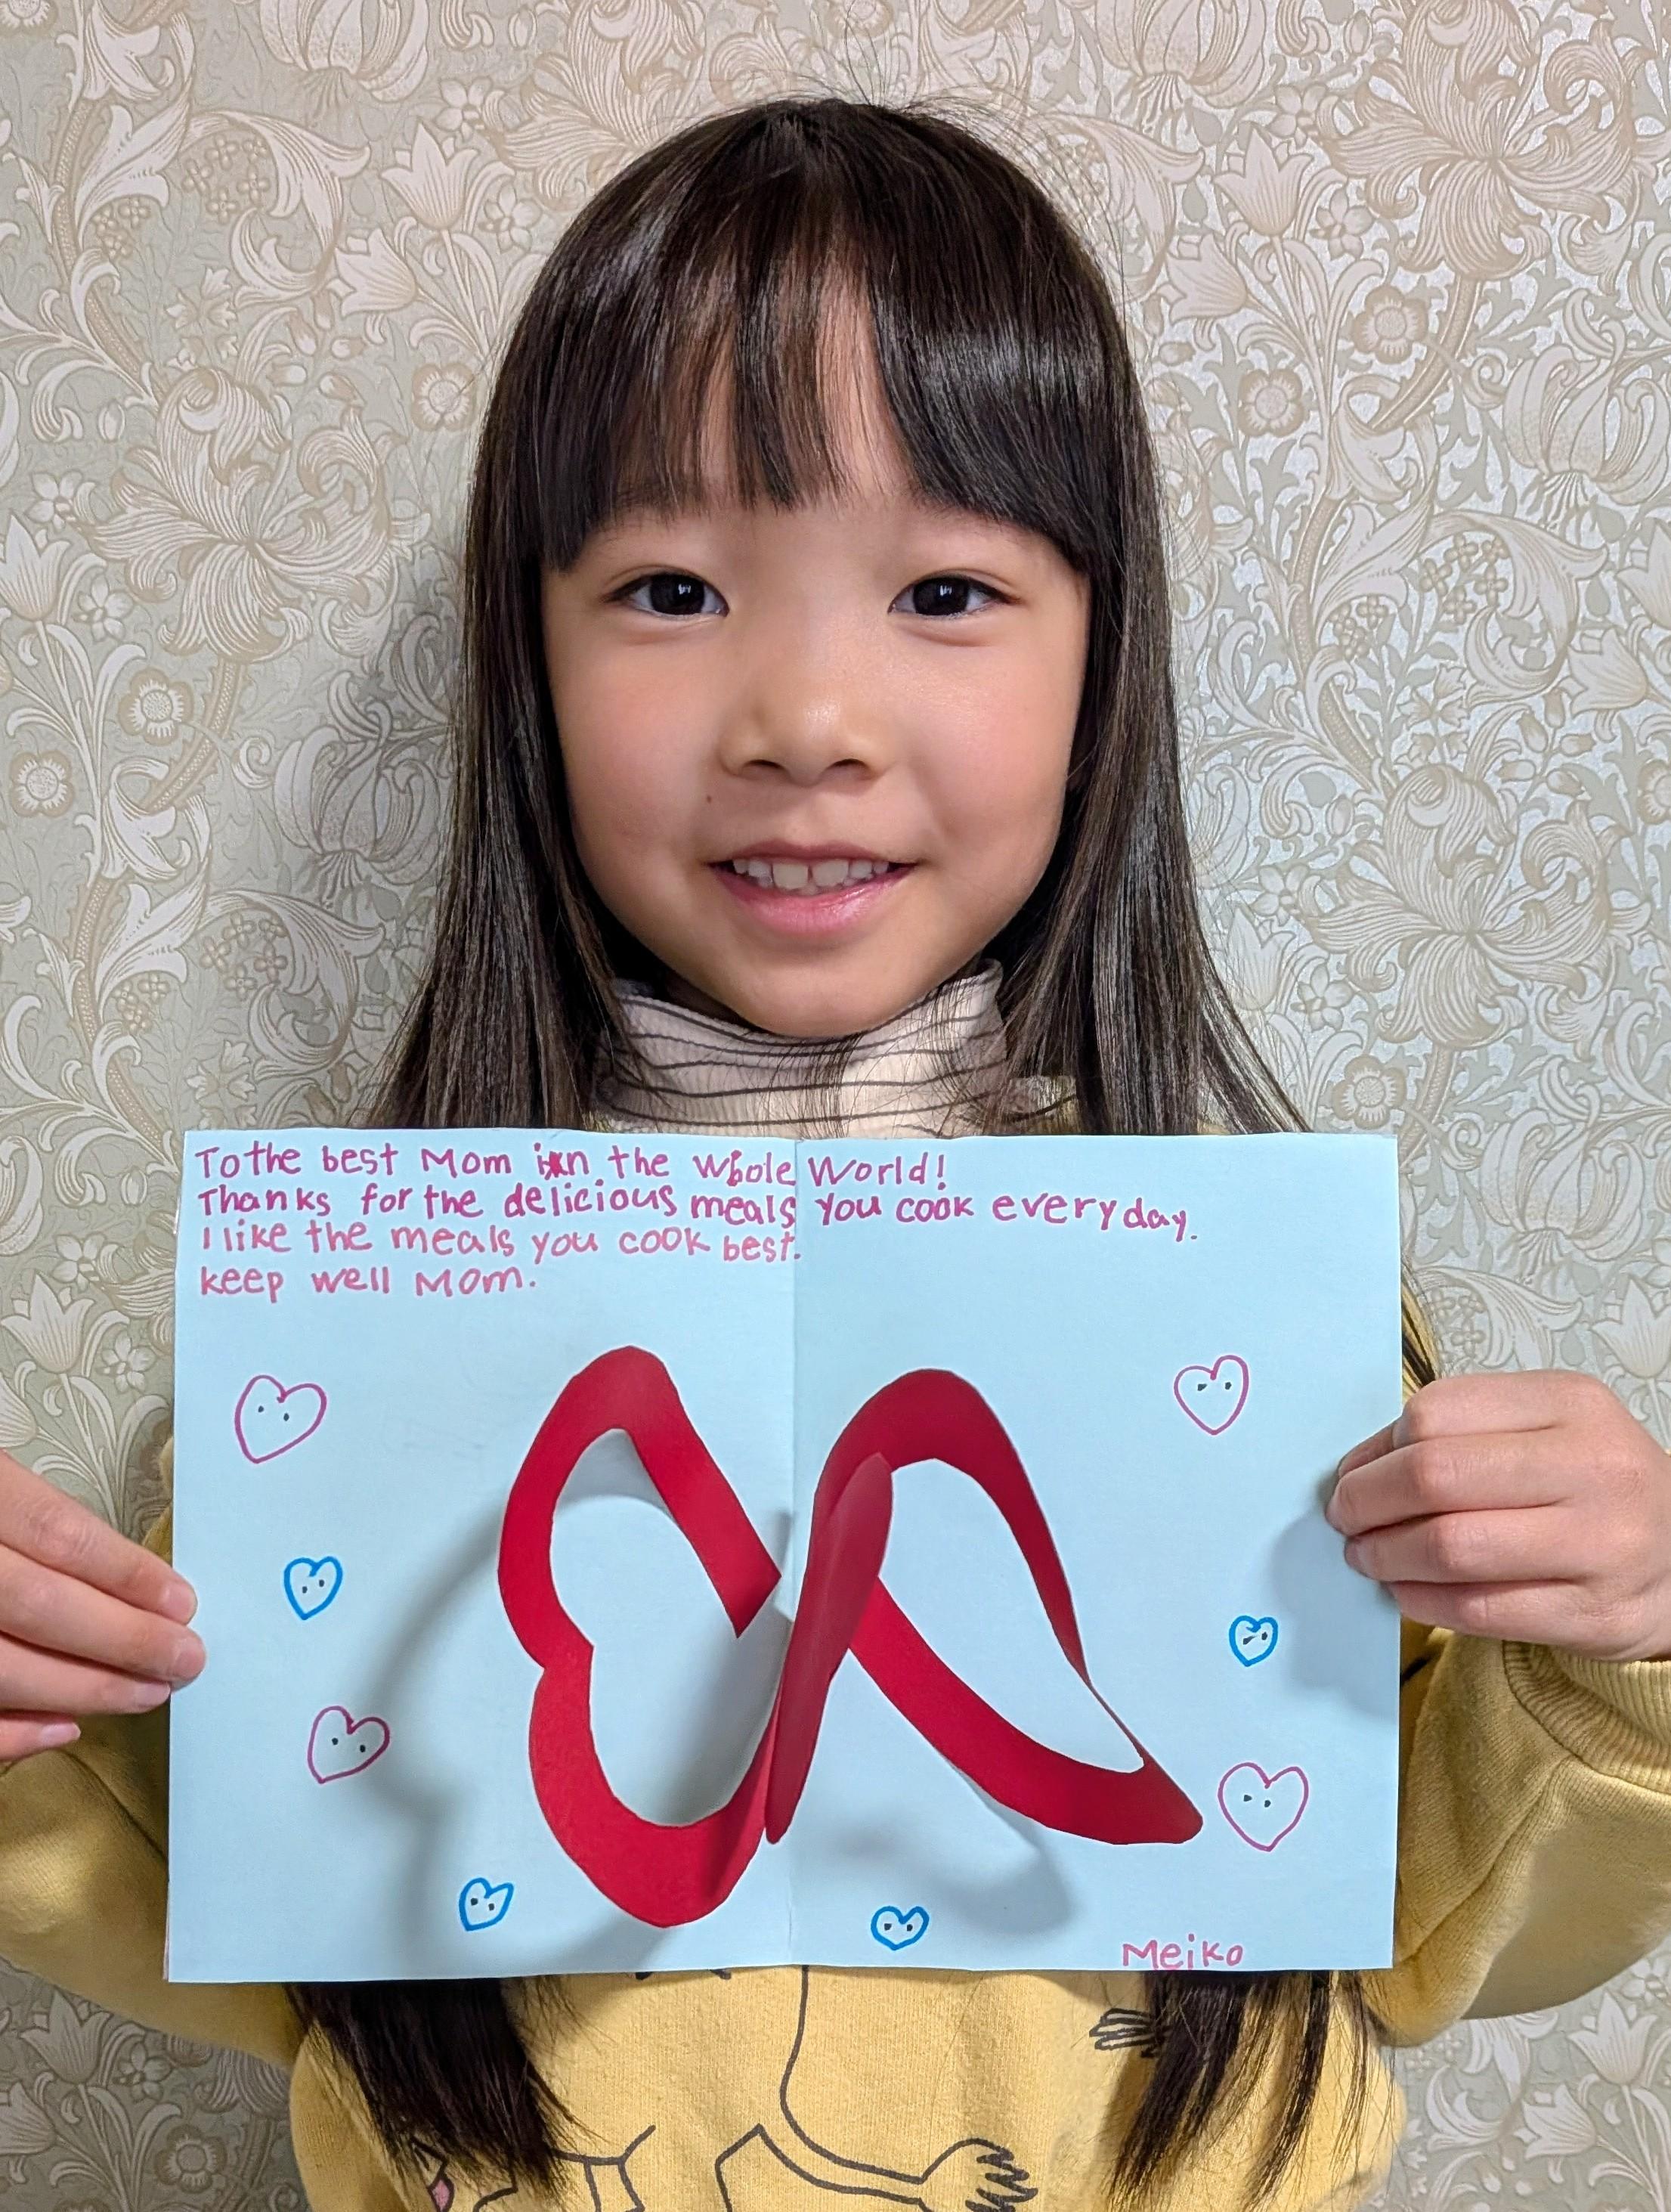 To the best Mom in the whole World!
Thanks for the delicious meals you cook everyday.
I like the meals you cook best.
keep well Mom.
Meiko